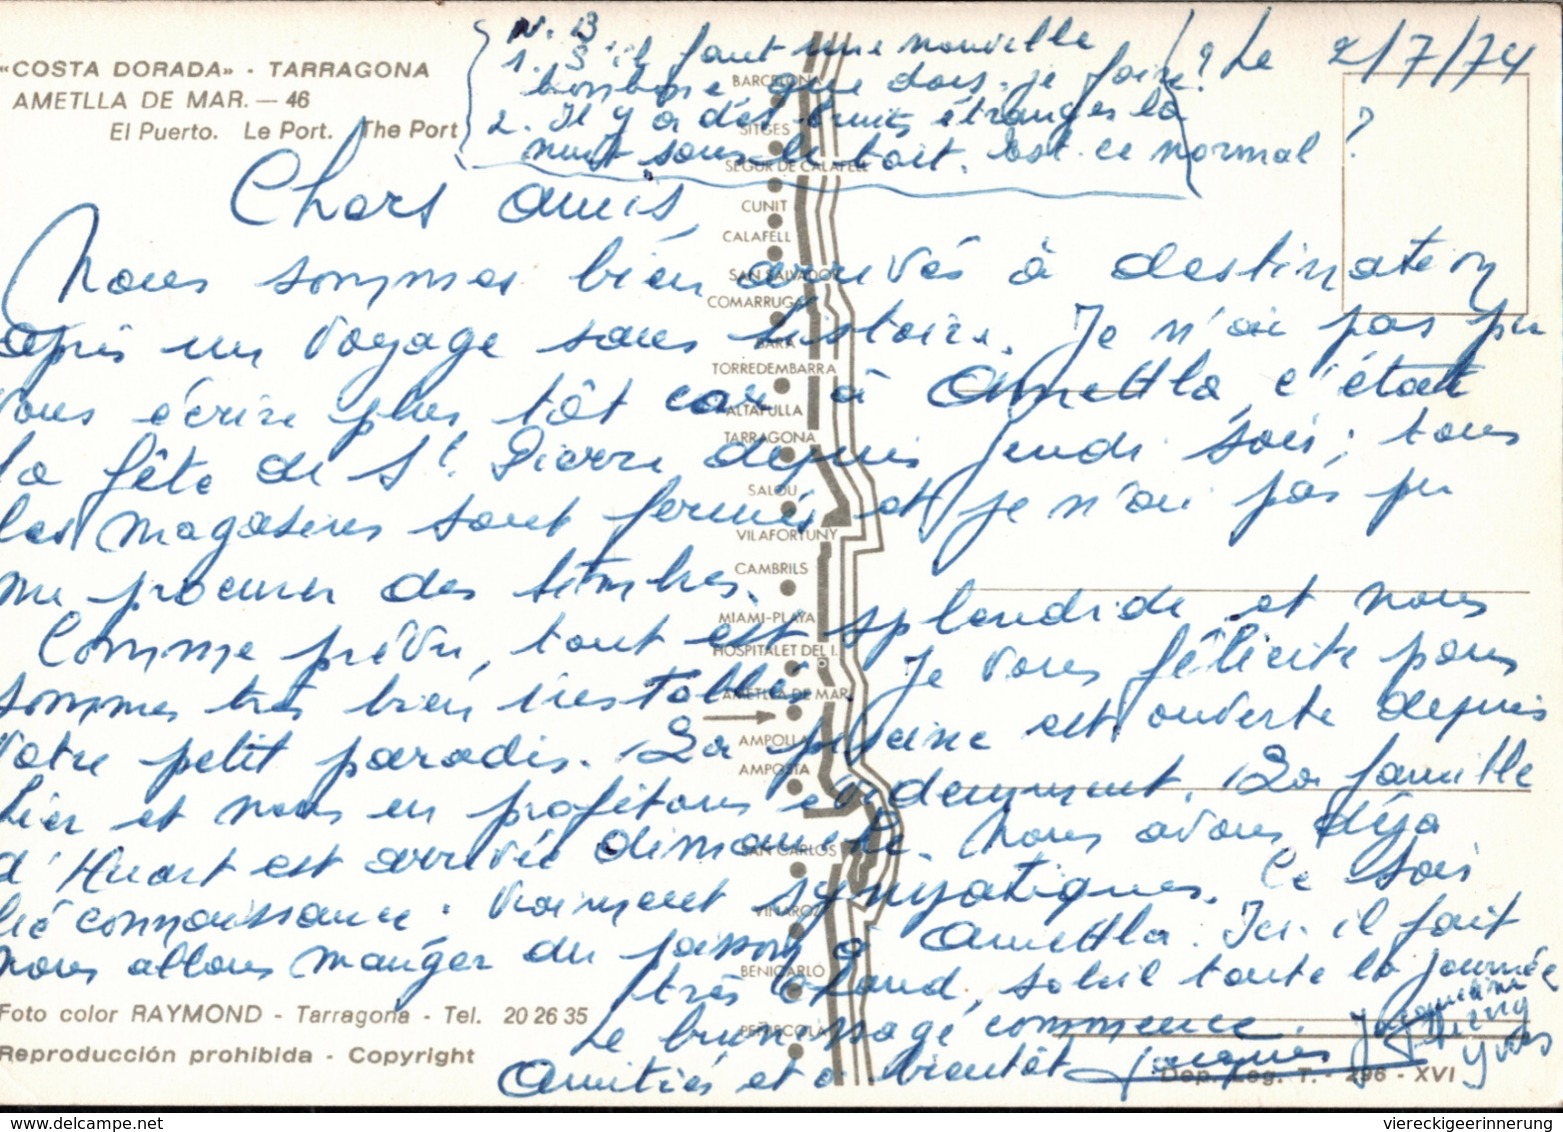 «COSTA DORADA» - TARRAGONA
AMETLLA DE MAR. — 46
El Puerto. Le Port. The Port
N.B
1. S'il faut une nouvelle
bonbone que dois-je faire?
2. Il y a des bruits étranges la
nuit sous le toit. Est-ce normal ?
Le 2/7/74
Chers amis,
Nous sommes bien arrivés à destination
après un voyage sans histoire. Je n'ai pas pu
vous écrire plus tôt car à Ametlla, c'était
la fête de St. Pierre depuis jeudi soir; tous
les magasins sont fermés et je n'ai pas pu
me procurer des timbres.
Comme prévu, tout est splendide et nous
sommes très bien installés. Je vous félicite pour
votre petit paradis. La piscine est ouverte depuis
hier et nous en profitons évidemment. La famille
d'Huart est arrivée dimanche. Nous avons déjà
lié connaissance. Vraiment sympatiques. Ce soir
nous allons manger du poisson à Ametlla. Ici il fait
très chaud, soleil toute la journée
Le bronzage commence.
Amitiés et à bientôt Jacques
Jacqueline
Thierry
Yves
BARCELONA
SITGES
SEGUR DE CALAFELL
CUNIT
CALAFELL
SAN SALVADOR
COMARRUGA
BARA
TORREDEMBARRA
ALTAFULLA
TARRAGONA
SALOU
VILAFORTUNY
CAMBRILS
MIAMI-PLAYA
HOSPITALET DEL I.
AMETLLA DE MAR
AMPOLLA
AMPOSTA
SAN CARLOS
VINAROZ
BENICARLO
PEÑISCOLA
Foto color RAYMOND - Tarragona - Tel. 20 26 35
Reproducción prohibida - Copyright
Dep. Leg. T. - 296 - XVI
delcampe.net
viereckigeerinnerung